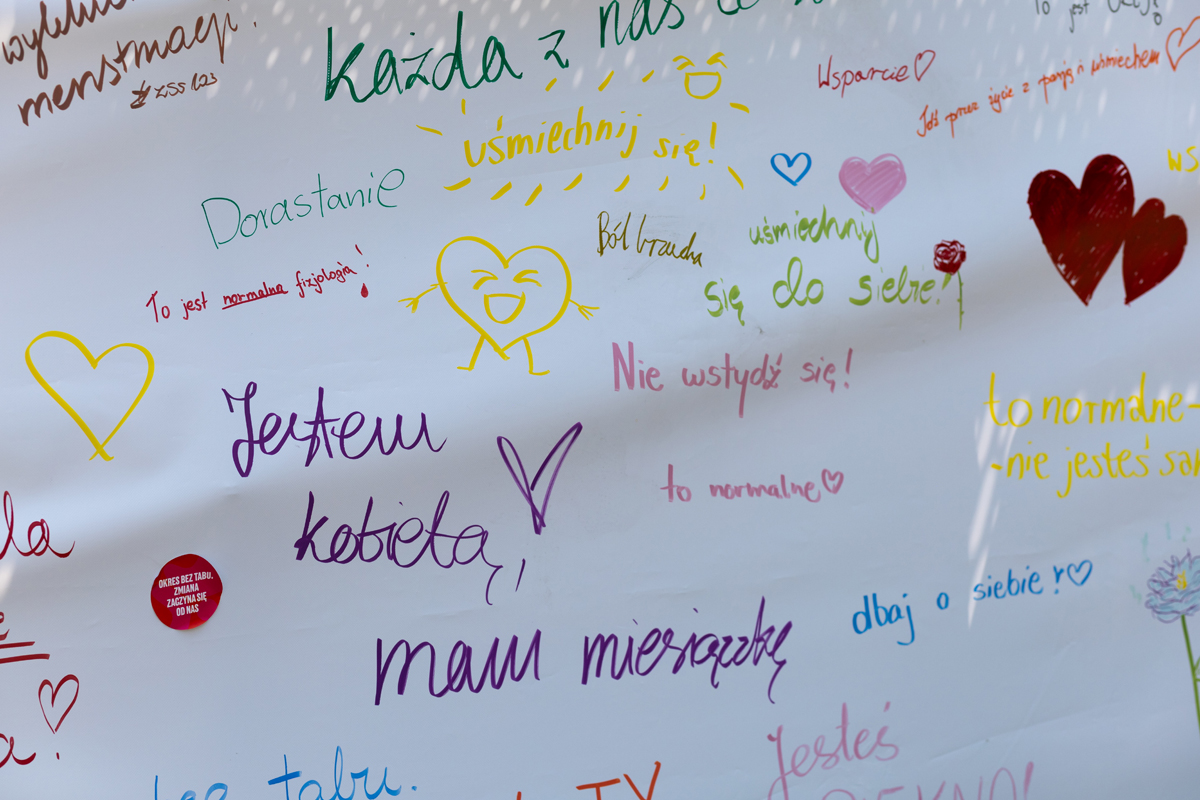 menstruacji.
ZSS 123
Każda z nas
To jest
Wsparcie
Idź przez życie z pasją i uśmiechem
uśmiechnij się!
Dorastanie
Ból brzucha
uśmiechnij
się do siebie!
To jest normalna fizjologia!
Nie wstydź się!
Jestem
kobietą,
mam miesiączkę
to normalne
to normalne-
-nie jesteś
OKRES BEZ TABU.
ZMIANA
ZACZYNA SIĘ
OD NAS
dbaj o siebie!
Jesteś
tabu.
TY